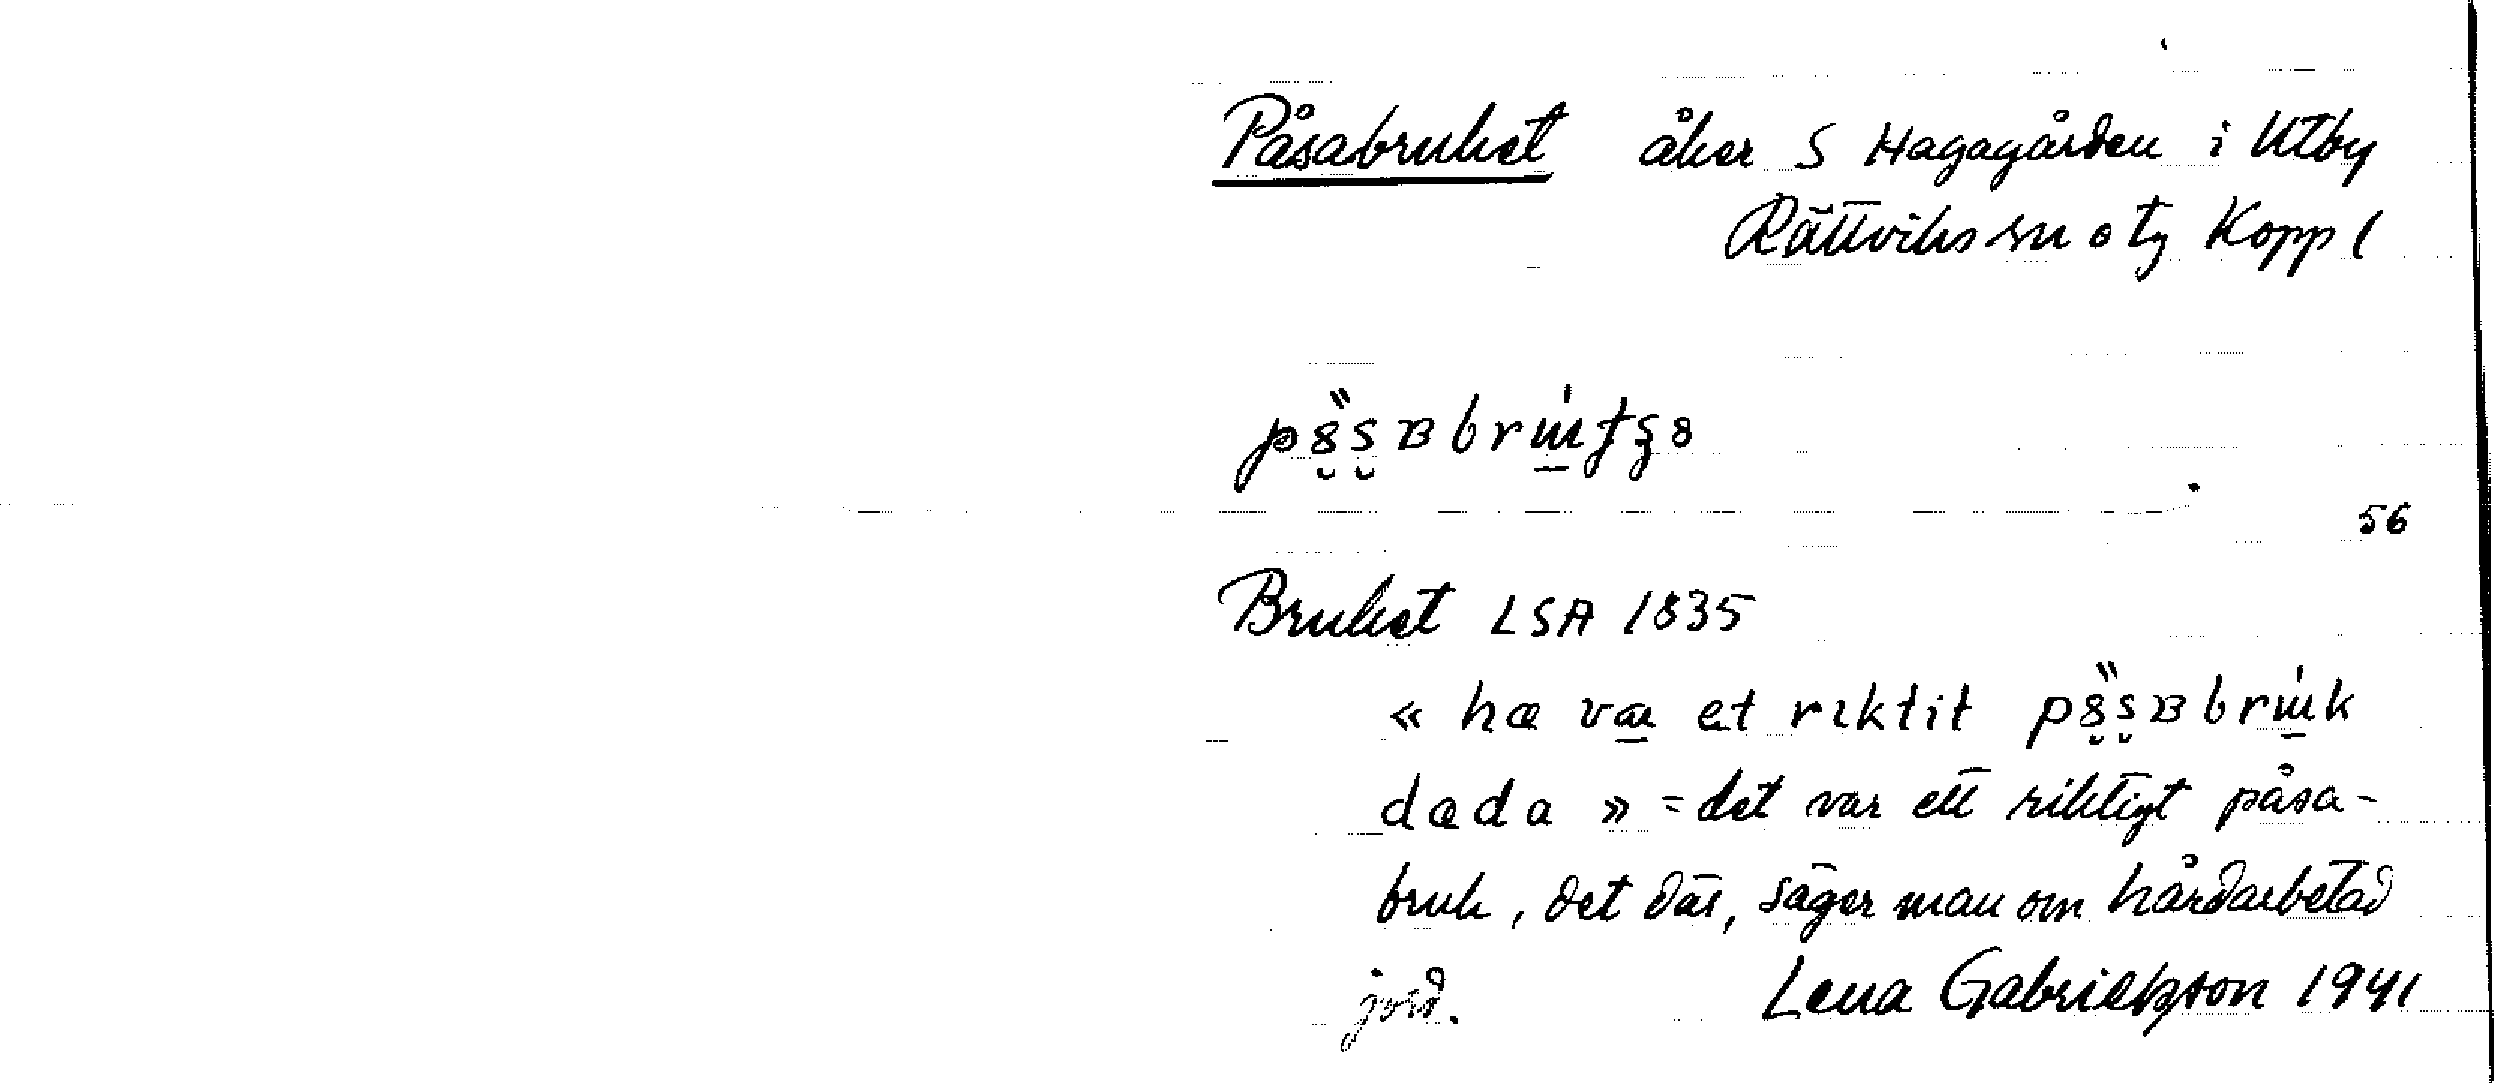 Påsabruket åker S Hagagården i Utby
Rättviks sn o tg Kopp l
56
Bruket LSA 1835
« hæ væ et rɪktit
dæda » = det var ett riktigt påsa-
bruk, det där, säger man om hårdarbetad
jord. Lena Gabrielsson 1941